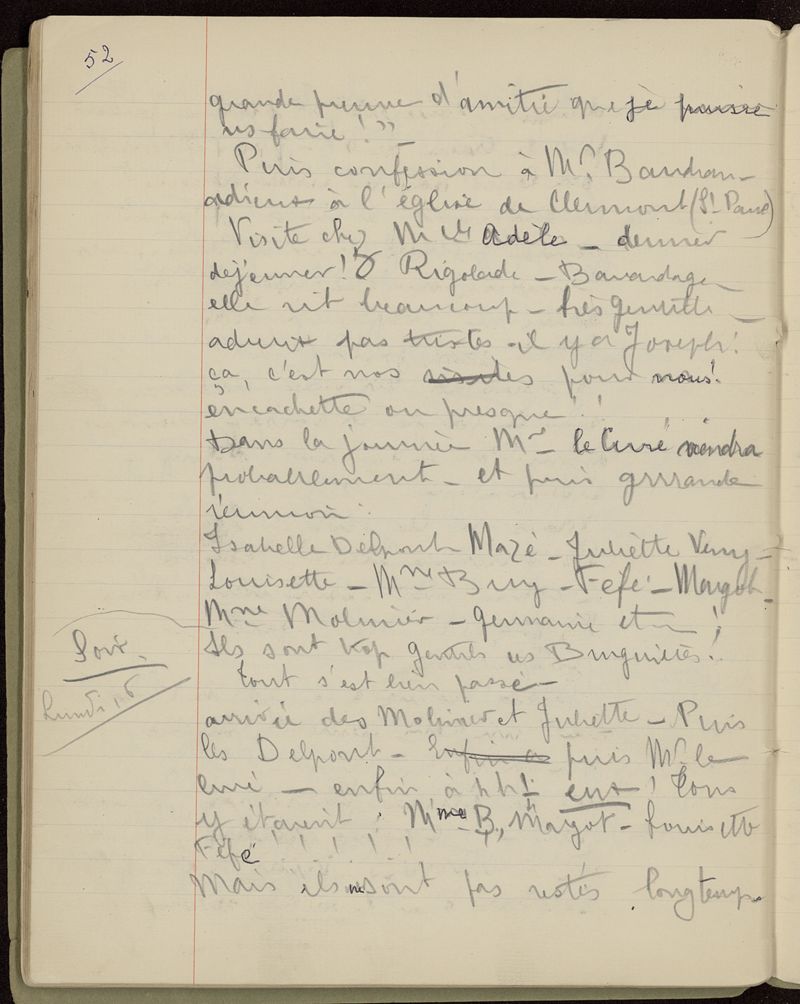 52
grande preuve d'amitié que je puisse
vs faire ! "
Puis confession à Mr. Baudran –
adieux à l'église de Clermont (St Paul)
Visite chez Mlle Adèle – dernier
déjeuner ! Rigolade – Bavardage –
elle rit beaucoup – très gentille –
adieux pas tristes – il y a Joseph !
ça, c'est nos visites pour nous !
en cachette ou presque ! !
Dans la journée Mr le Curé viendra
probablement – et puis grrrande
réunion :
Isabelle Delpont Mazé – Juliette Veny –
Louisette – Mme Buy – Féfé – Margot –
Mme Molinier – Germaine et
Soir –
Ils sont trop gentils ces Bruguières !
Tout s'est bien passé –
Lundi, 6
arrivée des Molinier et Juliette – Puis
les Delpont – Enfin puis Mr. le
curé – enfin à eux ! Tous
y étaient : Mme B., Margot – Louisette
Féfé ! ! ! ! !
Mais ils ne sont pas restés longtemps.